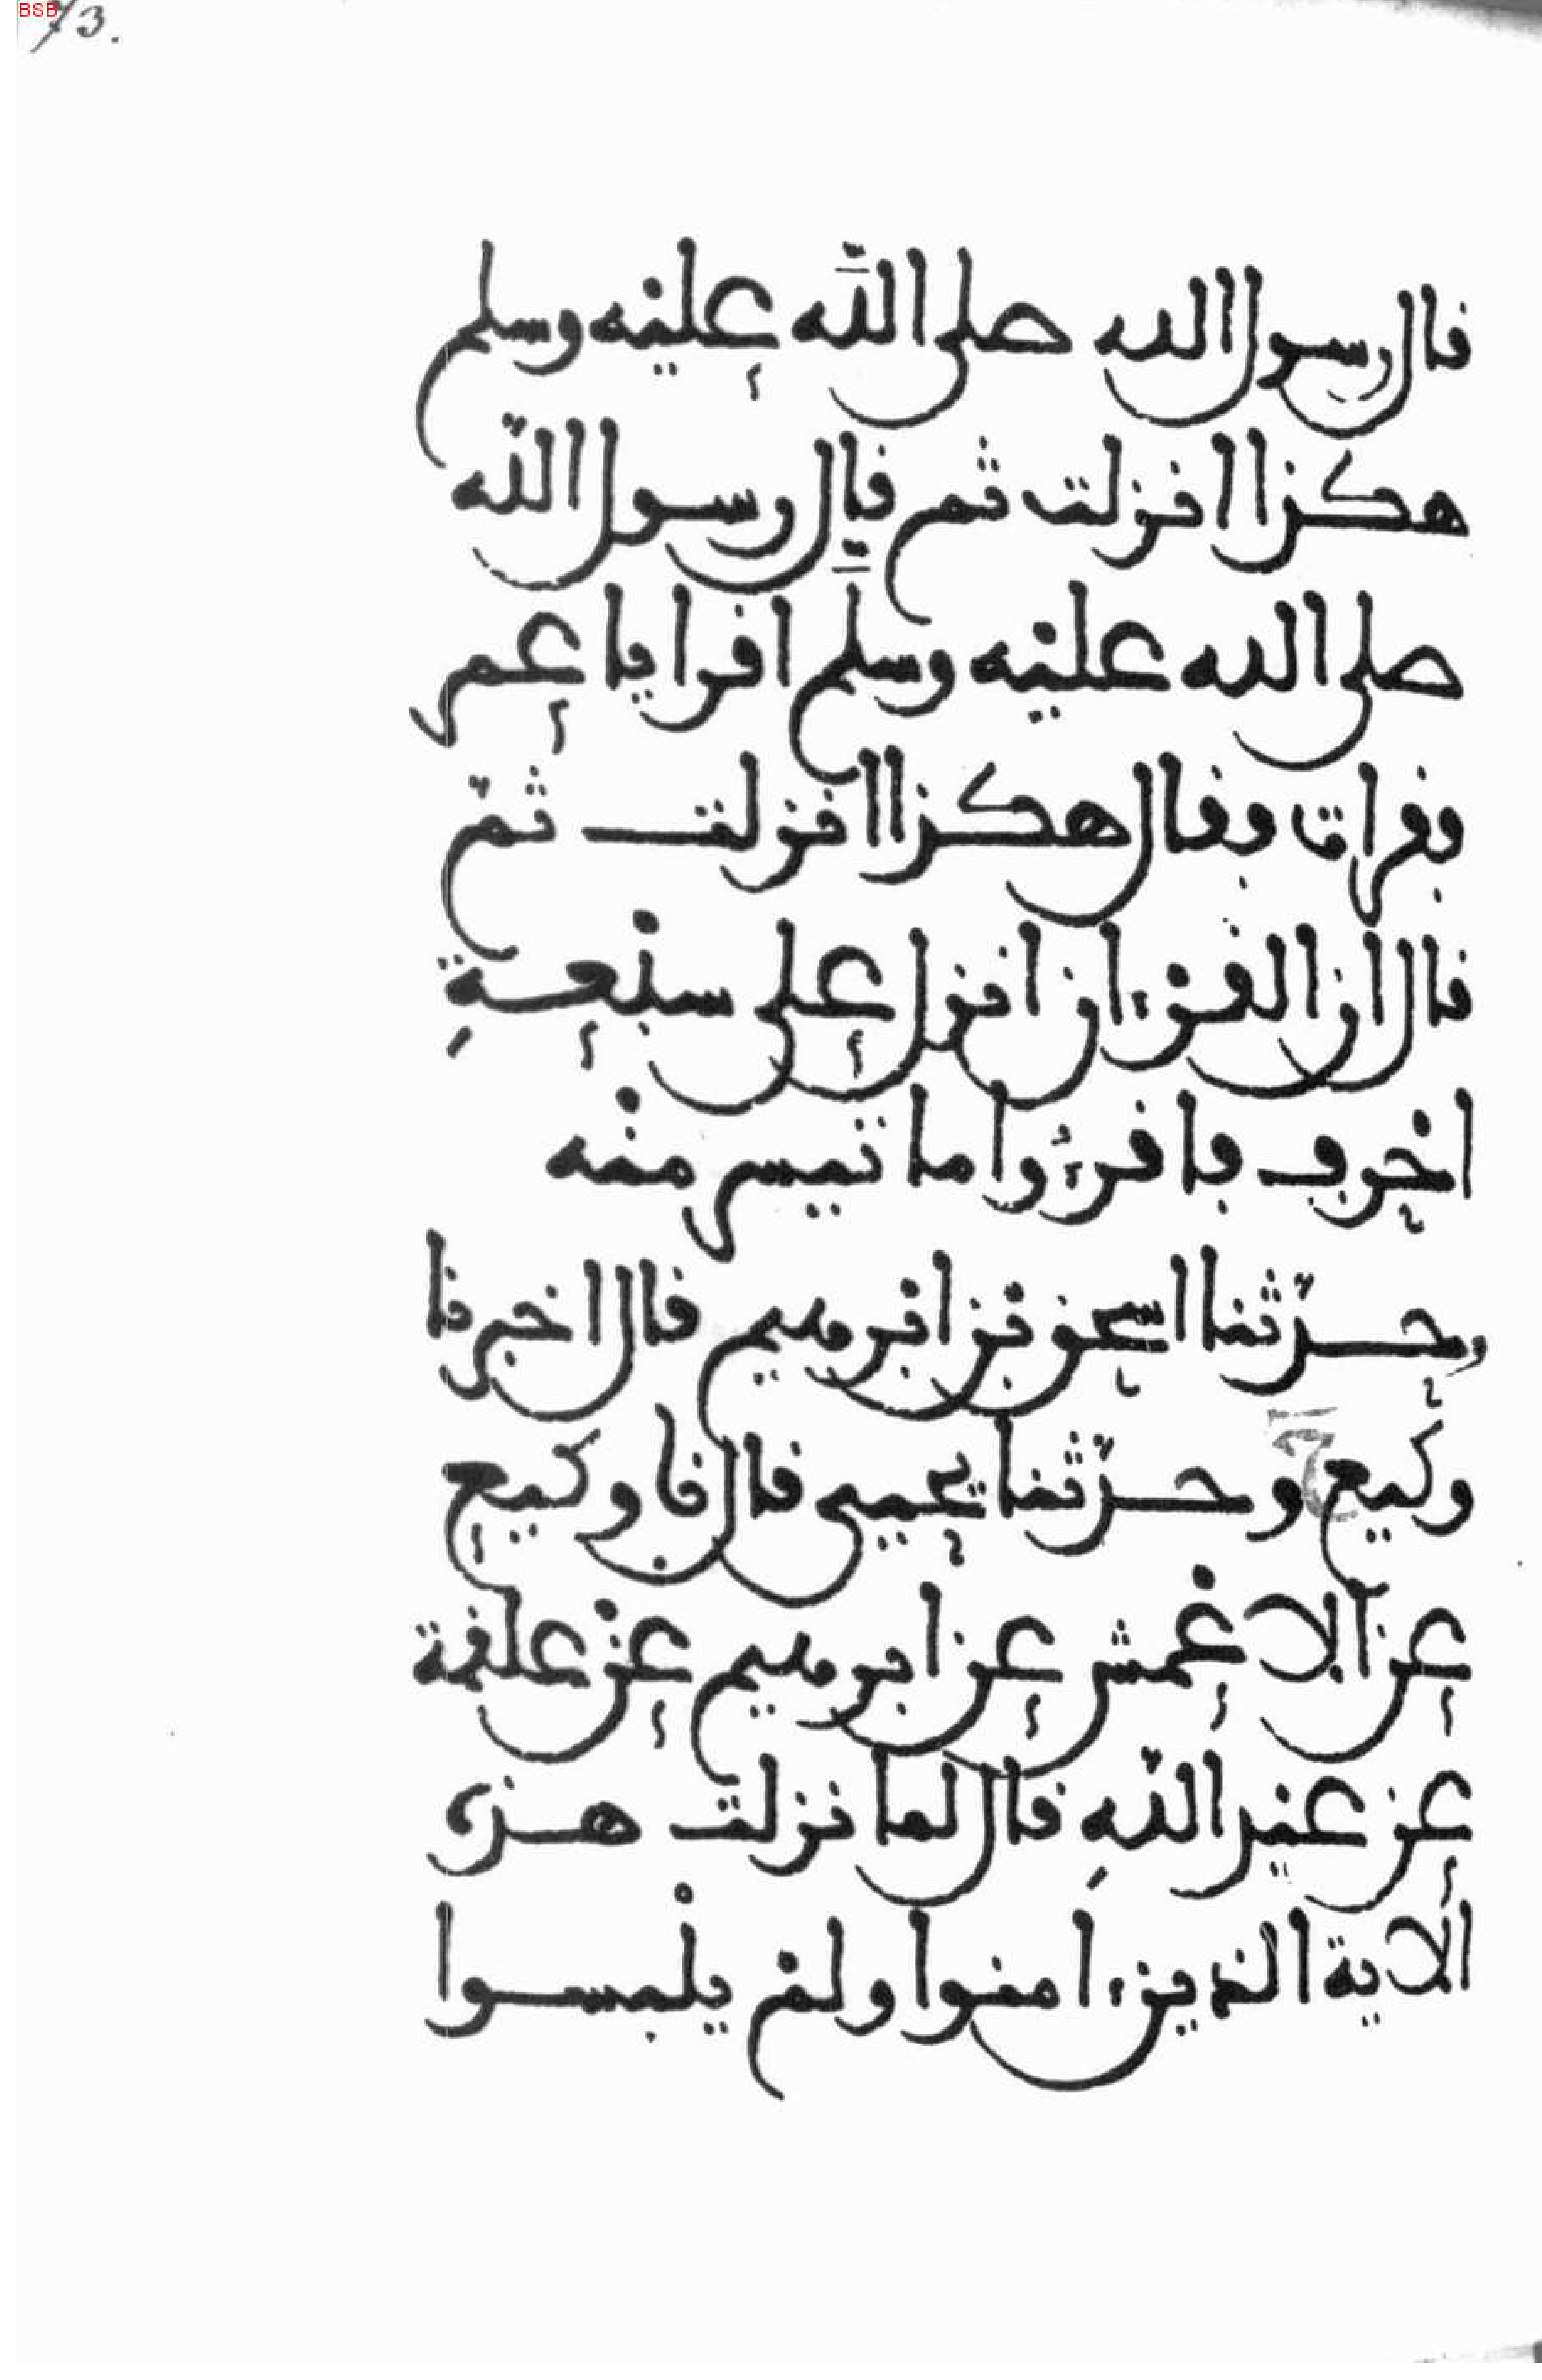 73.
قال رسول الله صلى الله عليه وسلم
هكذا انزلت ثم قال رسول الله
صلى الله عليه وسلم اقرا يا عمر
فقرات فقال هكذا انزلت ثمّ
قال ان القرءان انزل على سبعةِ
احرف فاقرءُوا ما تيسر منه
وحدّثنا اسحق بن ابرهيم قال اخبرنا
وكيع ح وحدّثنا يحيى قال نا وكيع
عن الاعْمش عن ابرهيم عنْ علقمة
عن عبد اللّهِ قال لما نزلت هذه
الاية الذين ءامنوا ولمْ يلْبسوا